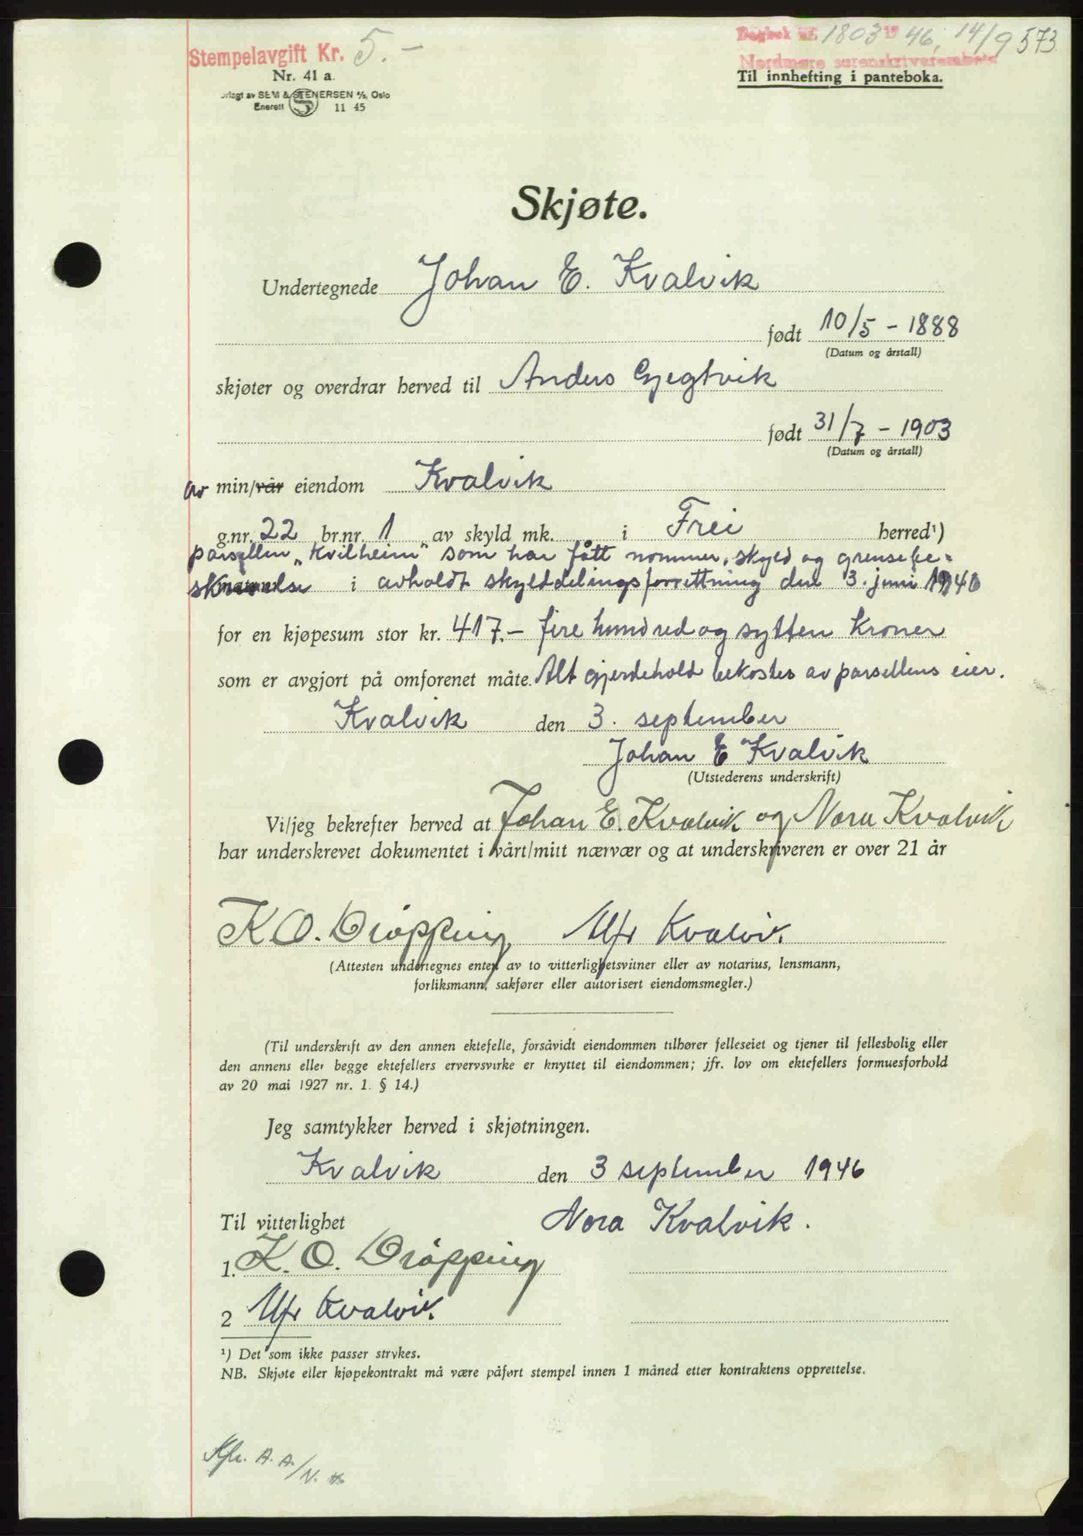 Stempelavgift Kr. 5.-
Dagbok nr. 1803 1946, 14/9 573.
Nordmøre sorenskriverembete
Nr. 41 a.
Til innhefting i panteboka.
Forlagt av SEM & STENERSEN A/S, Oslo
Enerett 11 45
Skjøte.
Undertegnede Johan E. Kvalvik
født 10/5 - 1888
(Datum og årstall)
skjøter og overdrar herved til Anders Gjegtvik
født 31/7 - 1903
(Datum og årstall)
av min/vår eiendom Kvalvik
g.nr. 22 br.nr. 1 av skyld mk. i Frei herred¹)
parsellen "Kvilheim" som har fått nommer, skyld og grensebe-
skrivelse i avholdt skylddelingsforrettning den 3. juni 1946
for en kjøpesum stor kr. 417.- fire hundred og sytten kroner
som er avgjort på omforenet måte. Alt gjerdehold bekostes av parsellens eier.
Kvalvik den 3. september
Johan E Kvalvik
(Utstederens underskrift)
Vi/jeg bekrefter herved at Johan E. Kvalvik og Nora Kvalvik
har underskrevet dokumentet i vårt/mitt nærvær og at underskriveren er over 21 år
K O. Drøpping Alfr Kvalvik.
(Attesten undertegnes enten av to vitterlighetsvitner eller av notarius, lensmann,
forliksmann, sakfører eller autorisert eiendomsmegler.)
(Til underskrift av den annen ektefelle, forsåvidt eiendommen tilhører felleseiet og tjener til fellesbolig eller
den annens eller begge ektefellers ervervsvirke er knyttet til eiendommen; jfr. lov om ektefellers formuesforhold
av 20 mai 1927 nr. 1. § 14.)
Jeg samtykker herved i skjøtningen.
Kvalvik den 3 september 1946
Til vitterlighet Nora Kvalvik.
1. K. O. Drøpping
2 Alfr Kvalvik.
¹) Det som ikke passer strykes.
NB. Skjøte eller kjøpekontrakt må være påført stempel innen 1 måned etter kontraktens opprettelse.
A. A./N.